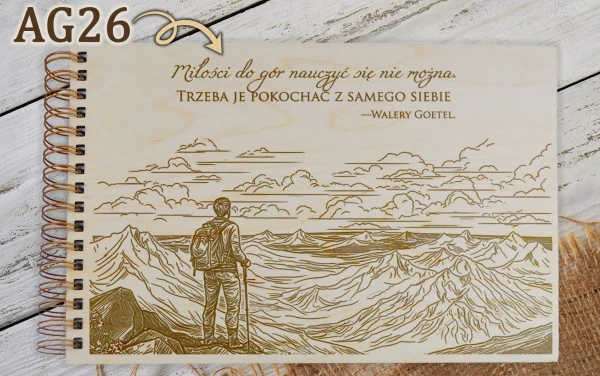 AG26
Miłości do gór nauczyć się nie można.
TRZEBA JE POKOCHAĆ Z SAMEGO SIEBIE
—WALERY GOETEL.